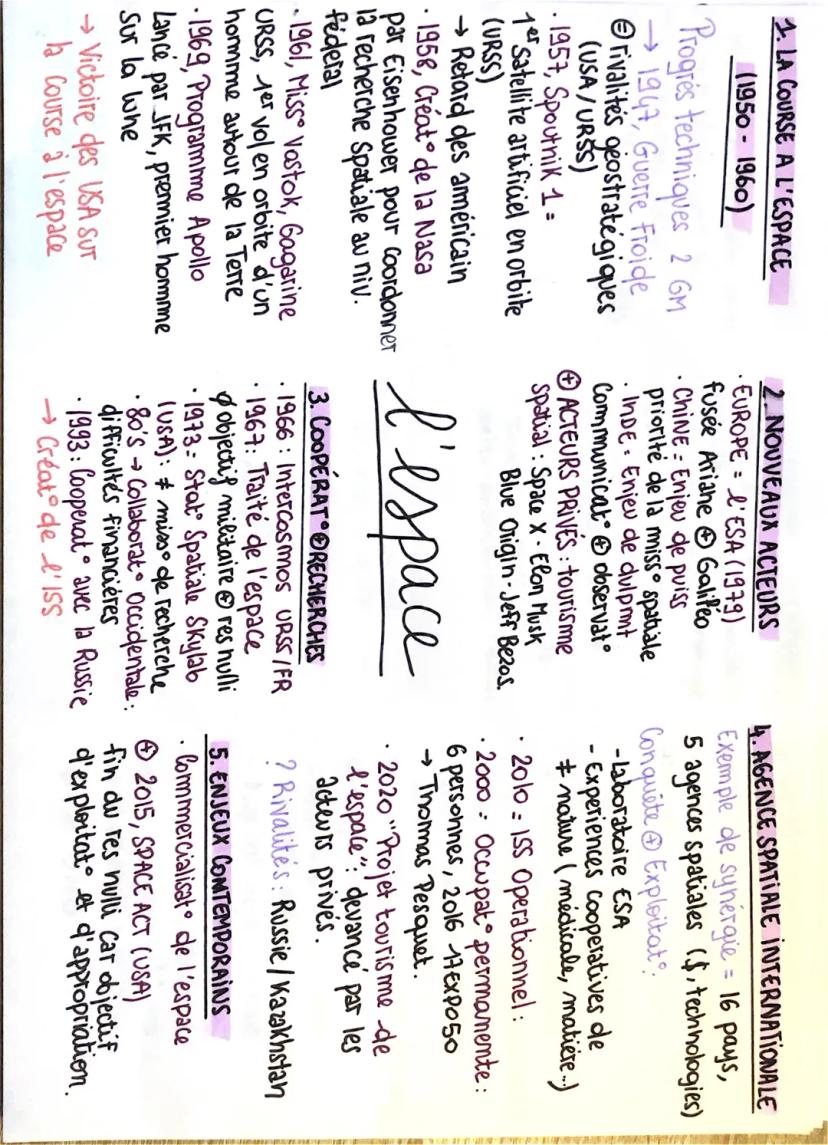 1. LA COURSE A L'ESPACE
(1950 - 1960)
Progrès techniques 2 GM
→ 1947, Guerre Froide
⊖ rivalités géostratégiques
(USA / URSS)
· 1957, Spoutnik 1 =
1er satellite artificiel en orbite
(URSS)
→ Retard des américain
· 1958, Créat° de la Nasa
par Eisenhower pour coordonner
la recherche Spatiale au niv.
fédéral
· 1961, Miss° Vostok, Gagarine
URSS, 1er vol en orbite d'un
homme autour de la Terre
· 1969, Programme Apollo
Lancé par JFK, premier homme
sur la lune
→ Victoire des USA sur
la Course à l'espace
2. NOUVEAUX ACTEURS
· EUROPE = l'ESA (1979)
fusée Ariane ⊕ Galileo
· CHINE = Enjeu de puiss
priorité de la miss° spatiale
· INDE = Enjeu de dvlpmt
communicat° ⊕ observat°
⊕ ACTEURS PRIVÉS : tourisme
spatial : Space X - Elon Musk
Blue Origin - Jeff Bezos.
l'espace
3. COOPÉRAT° ⊕ RECHERCHES
· 1966 : Intercosmos URSS / FR
· 1967 : Traité de l'espace
∅ objectif militaire ⊕ res nulli
· 1973 = Stat° Spatiale Skylab
(USA) : ≠ miss° de recherche
· 80's → Collaborat° Occidentale :
difficultés financières
· 1993 : Cooperat° avec la Russie
→ Créat° de l'ISS
4. AGENCE SPATIALE INTERNATIONALE
Exemple de synergie = 16 pays,
5 agences spatiales ($, technologies)
Conquête ⊕ Exploitat° :
- Laboratoire ESA
- Experiences cooperatives de
≠ nature ( médicale, matière...)
· 2010 = ISS Operationnel :
· 2000 : Occupat° permanente :
6 personnes, 2016 17 EXPO50
→ Thomas Pesquet.
· 2020 "Projet tourisme de
l'espace" : devancé par les
acteurs privés.
? Rivalités : Russie / Kazakhstan
5. ENJEUX CONTEMPORAINS
· Commercialisat° de l'espace
⊕ 2015, SPACE ACT (USA)
fin du res nulli car objectif
d'exploitat° et d'appropriation.